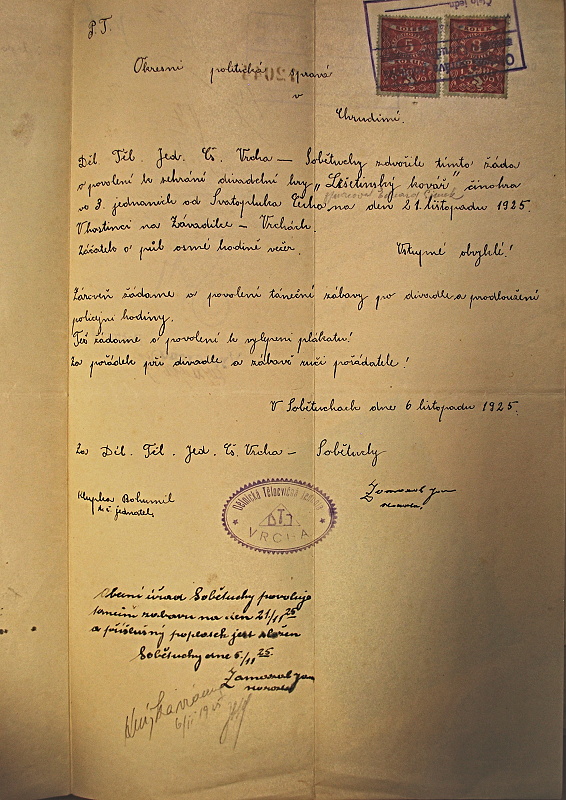 P. T.
Okresní politická správa
v
Chrudimi.
Děl. Těl. Jed. Čš. Vrcha — Sobětuchy zdvořile tímto žádá
o povolení k sehrání divadelní hry „Lešetinský kovář“ činohra
ve 3. jednaních od Svatopluka Čecha na den 21. listopadu 1925.
V hostinci na Závadilce — Vrchách.
Začátek o půl osmé hodině večer. Vstupné obvyklé!
Zároveň žádáme o povolení taneční zábavy po divadle a prodloužení
policejní hodiny.
Též žádáme o povolení k vylepení plakátu!
Za pořádek při divadle a zábavě ručí pořádatelé!
V Sobětuchach dne 6 listopadu 1925.
Za Děl. Těl. Jed. Čš. Vrcha — Sobětuchy
Bohumil
t. č. jednatel.
Jan
starosta
Dělnická Tělocvičná Jednota
DTJ
VRCHA
Obecní úřad Sobětuchy povoluje
taneční zábavu na den 21/11 25
a příslušný poplatek jest složen
Sobětuchy dne 6./11 25.
Jan
starosta
6/11 1925
5
3